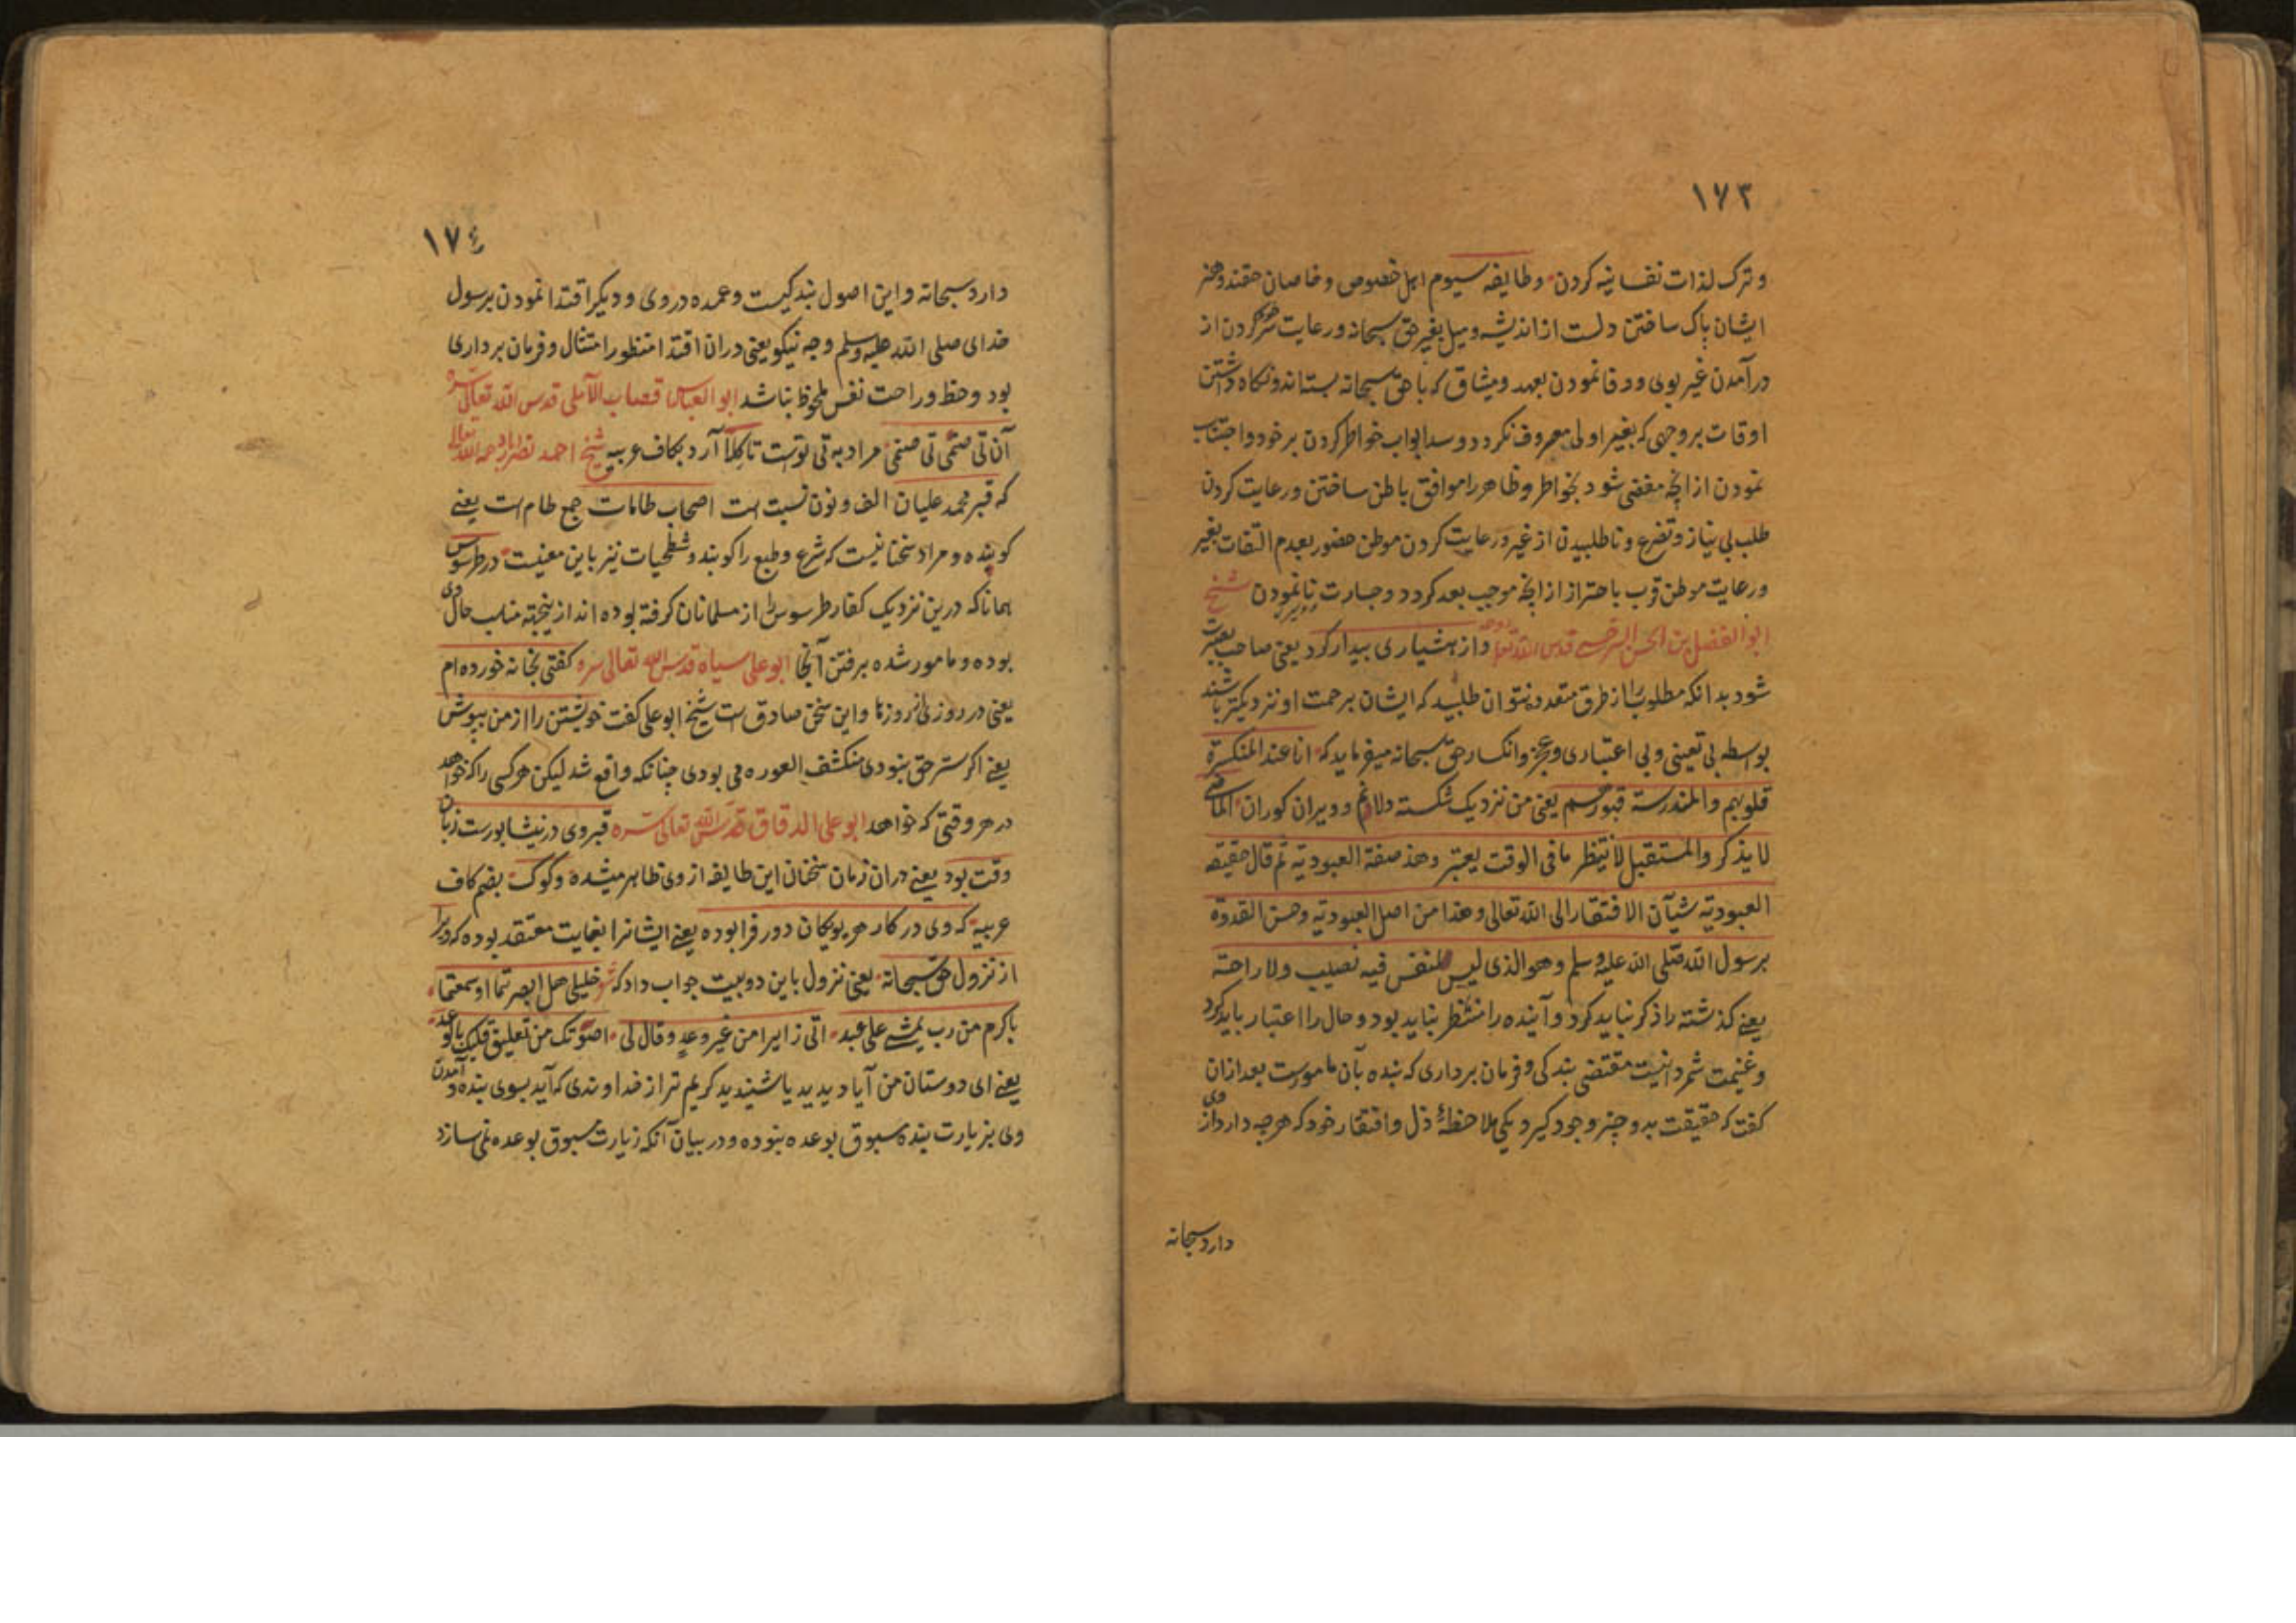 ١٧٣
و ترک لذات نفسانیه کردن و طایفه سیوم اهل خصوص و خاصان حقند و هنر
ایشان پاک ساختن دلست از اندیشه و میل بغیر حق سبحانه و رعایت سر کردن از
در آمدن غیر بوی و وفا نمودن بعهد و میثاق که با حق سبحانه بسته اند و نکاه داشتن
اوقات بر وجهی که بغیر اولی مصروف نکردد و سد ابواب خواطر کردن بر خود و اجتناب
نمودن از انچه مفضی شود بخواطر و ظاهر را موافق باطن ساختن و رعایت کردن
طلب بی نیاز و تضرع و ناطلبیدن از غیر و رعایت کردن موطن حضور بعدم التفات بغیر
و رعایت موطن قرب باحتراز از انچه موجب بعد کردد و جسارت نانمودن شیخ
ابو الفضل بن الحسن السرخسی قدس الله تعا روحه و از هشیاری بیدار کرد یعنی صاحب بصیرت
شود بدانکه مطلوب را از طرق متعدده نتوان طلبید که ایشان برحمت او نزدیکتر باشند
بواسطه بی تعینی و بی اعتباری و عجز و انکسار حق سبحانه میفرماید که انا عند المنکسرة
قلوبهم و المندرسة قبورهم یعنی من نزدیک شکسته دلانم و ویران کوران الماضی
لا یذکر و المستقبل لا ینتظر ما فی الوقت یعتبر و هذ صفة العبودیة ثم قال حقیقه
العبودیة شیآن الافتقار الی الله تعالی و هذا من اصل العبودیة و حسن القدوة
برسول الله صلی الله علیه وسلم و هو الذی لیس للنفس فیه نصیب و لا راحة
یعنی کذشته را ذکر نباید کرد و آینده را منتظر نباید بود و حال را اعتبار باید کرد
و غنیمت شمرد اینست مقتضی بندکی و فرمان برداری که بنده بآن مامورست بعد ازان
کفت که حقیقت بدو چیز وجود کیرد یکی ملاحظهٔ ذل و افتقار خود که هر چه دارد از وی
دارد سبحانه
١٧٤
دارد سبحانه و این اصول بندکیست و عمده در وی و دیکر اقتدا نمودن برسول
خدای صلی الله علیه وسلم وجه نیکو یعنی دران اقتدا منظور امتثال و فرمان برداری
بود و حظ و راحت نفس ملحوظ نباشد ابو العباس قصاب الآملی قدس الله تعالی سره
آن تی صنمی تی صنمی مراد به تی توست تا کلا آرد بکاف عربیه شیخ احمد نصر رحمه الله تعالی
که قبر محمد علیان الف و نون نسبت است اصحاب طامات جمع طام است یعنی
کوبنده و مراد سخنانیست که شرع و طبع را کوبند و شطحیات نیز باین معنیست در طرسوس
همانا که درین نزدیک کفار طرسوس را از مسلمانان کرفته بوده اند ازینجهة مناسب حال وی
بوده و مامور شده برفتن آنجا ابو علی سیاه قدس الله تعالی سره کفتی بخانه خورده ام
یعنی در روزی از روزها و این سخن صادق است شیخ ابو علی کفت خویشتن را از من بپوش
یعنی اکر ستر حق نبودی منکشف العوره می بودی چنانکه واقع شد لیکن هر کسی را که خواهد
در هر وقتی که خواهد ابو علی الدقاق قدس الله تعالی سره قبر وی در نیشابورست زبان
وقت بود یعنی دران زمان سخنان این طایفه از وی ظاهر میشده و کوک بضم کاف
عربیة که وی در کار هریوکان دور فرا بوده یعنی ایشانرا بغایت معتقد بوده که ویرا
از نزول حق سبحانه یعنی نزول باین دو بیت جواب داد که شعر خلیلی هل ابصرتما او سمعتما
باکرم من رب یمشی علی عبد اتی زایرا من غیر وعد و قال لی اصونک من تعلیق قلبک بالوعد
یعنی ای دوستان من آیا دیدید یا شنیدید کریم تر از خداوندی که آید بسوی بنده و آمدن
وی بزیارت بنده مسبوق بوعده نبوده و در بیان آنکه زیارت مسبوق بوعده نمی سازد